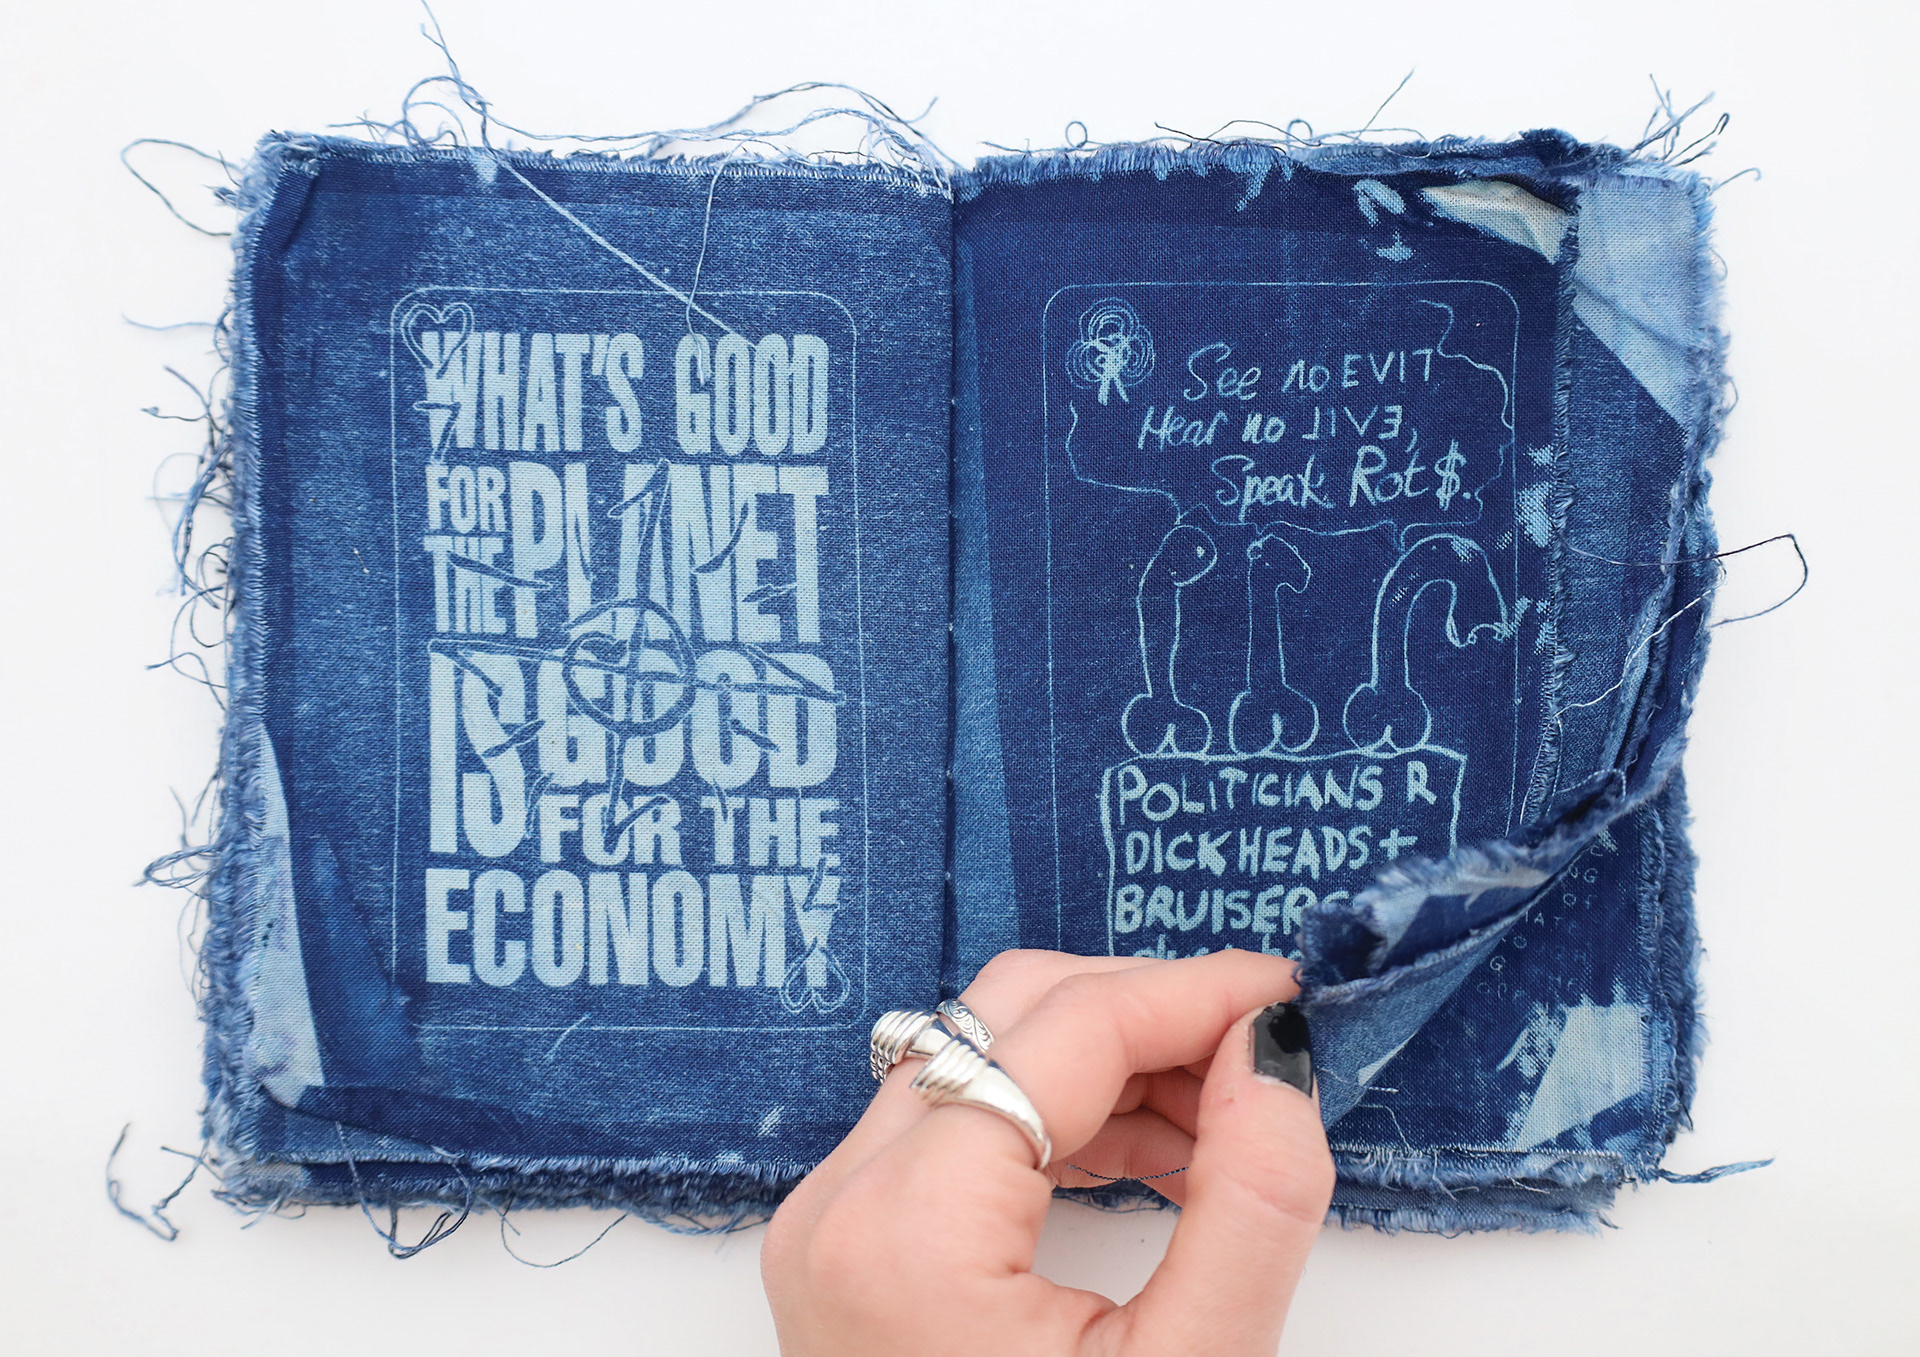 WHAT'S GOOD
FOR
THE PLANET
IS GOOD
FOR THE
ECONOMY
See no EVIL
Hear no LIVE,
Speak Rot$.
POLITICIANS R
DICKHEADS +
BRUISERS